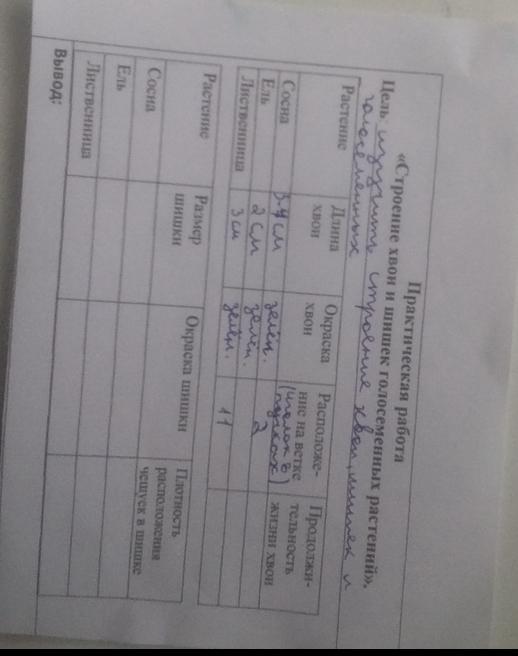 Практическая работа
«Строение хвои и шишек голосеменных растений».
Цель: изучить строение хвои, шишек и
голосеменных
Растение Длина хвои Окраска хвои Расположе-ние на ветке (иголок в пучках) Продолжи-тельность жизни хвои
Сосна 3-4 см зелён.
Ель 2 см зелён. 2
Лиственница 3 см зелён. 11
Растение Размер шишки Окраска шишки Плотность расположения чешуек в шишке
Сосна
Ель
Лиственница
Вывод: